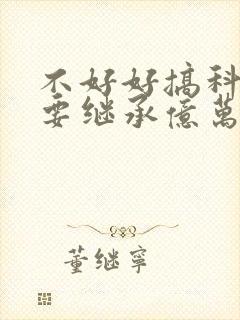 不好好搞科
要继承億萬
董继寧